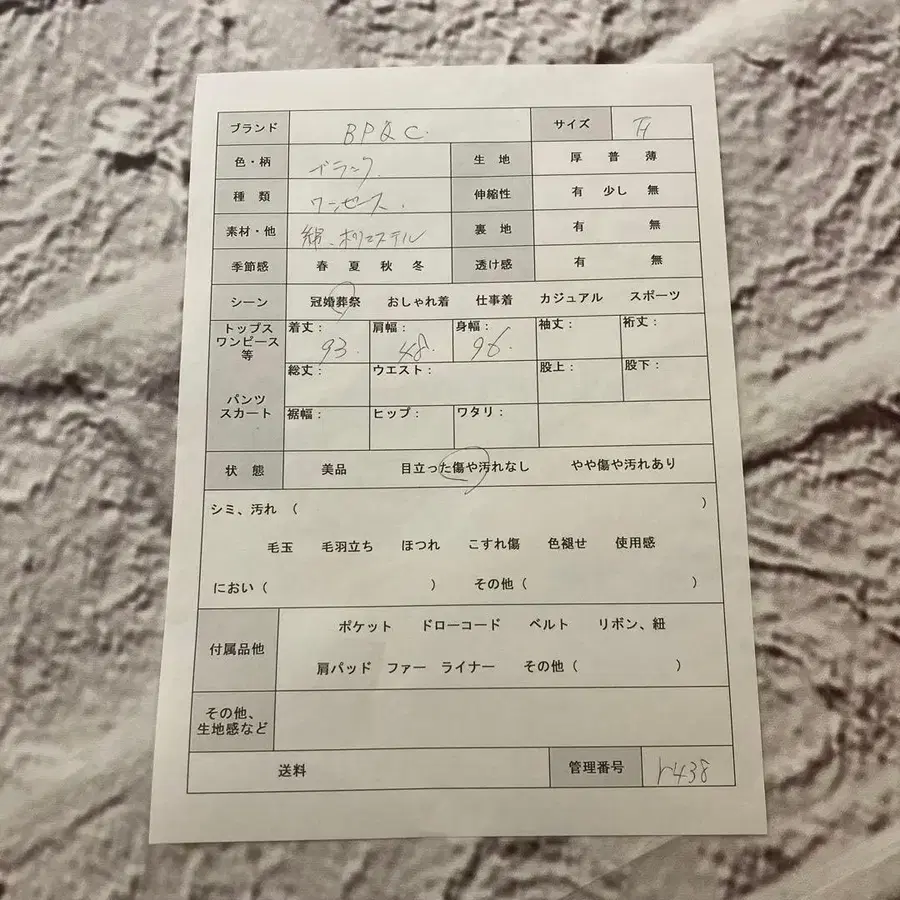 ブランド BPQC. サイズ
色・柄 ブラック. 生 地 厚 普 薄
種 類 ワンピース. 伸縮性 有 少し 無
素材・他 綿、ポリエステル 裏 地 有 無
季節感 春 夏 秋 冬 透け感 有 無
シーン 冠婚葬祭 おしゃれ着 仕事着 カジュアル スポーツ
トップス ワンピース 等 着丈: 93. 肩幅: 48. 身幅: 96. 袖丈: 裄丈:
パンツ スカート 総丈: ウエスト: 股上: 股下:
裾幅: ヒップ: ワタリ:
状 態 美品 目立った傷や汚れなし やや傷や汚れあり
シミ、汚れ ( )
毛玉 毛羽立ち ほつれ こすれ傷 色褪せ 使用感
におい ( ) その他 ( )
付属品他 ポケット ドローコード ベルト リボン、紐
肩パッド ファー ライナー その他 ( )
その他、
生地感など
送料 管理番号 r438